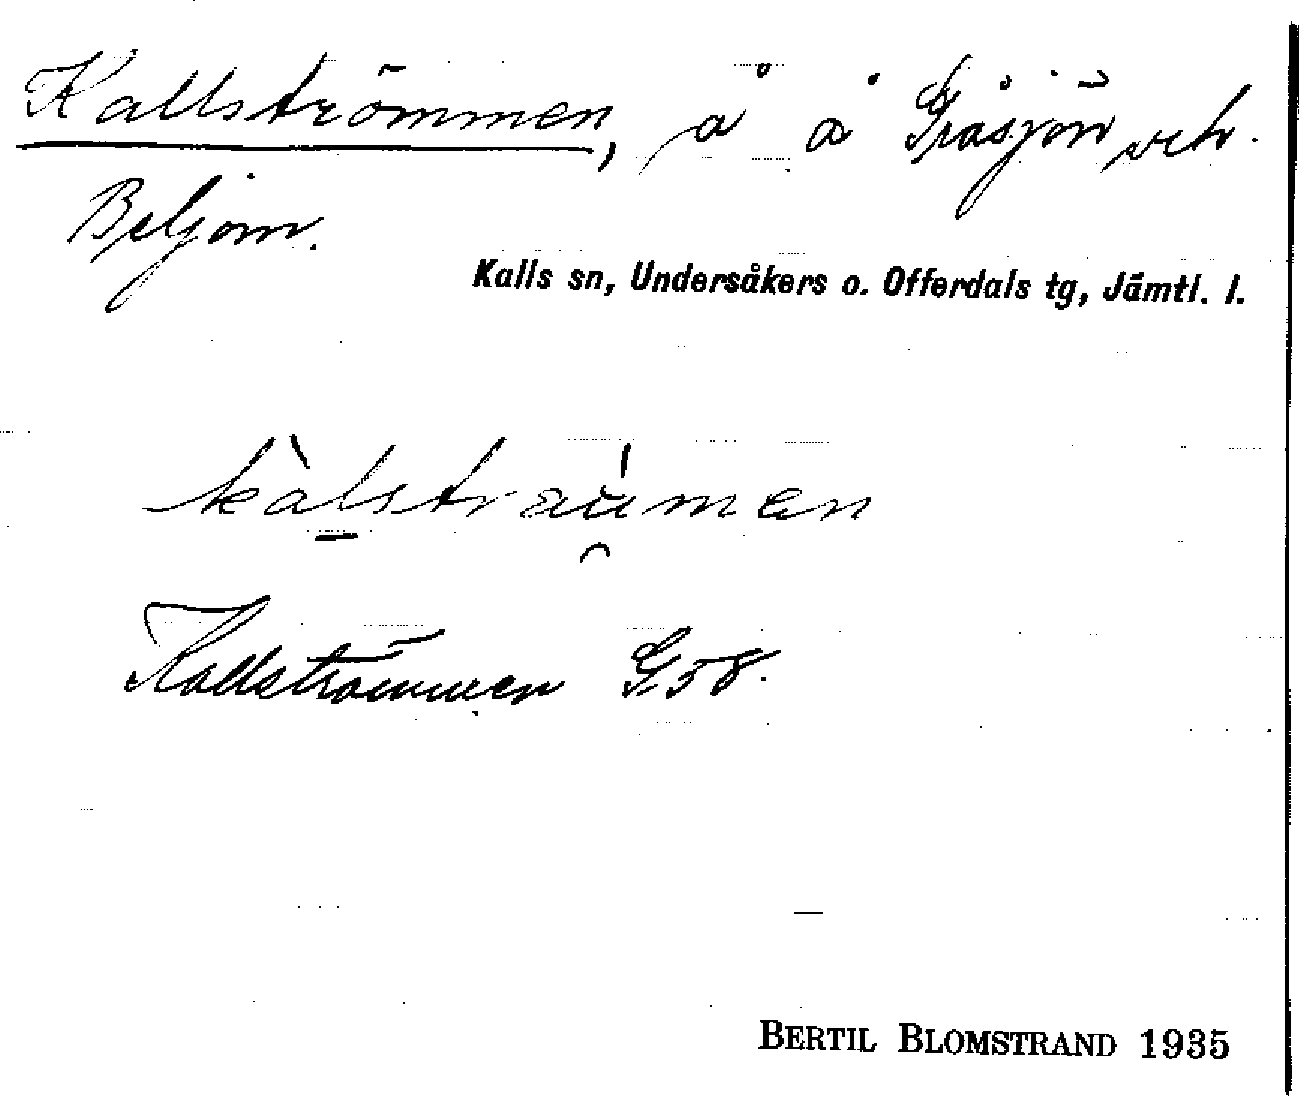 Kallströmmen, å å Gråsjön och
Beljom.
Kalls sn, Undersåkers o. Offerdals tg, Jämtl. l.
kàlstraúmen
Kallströmmen G58.
BERTIL BLOMSTRAND 1935